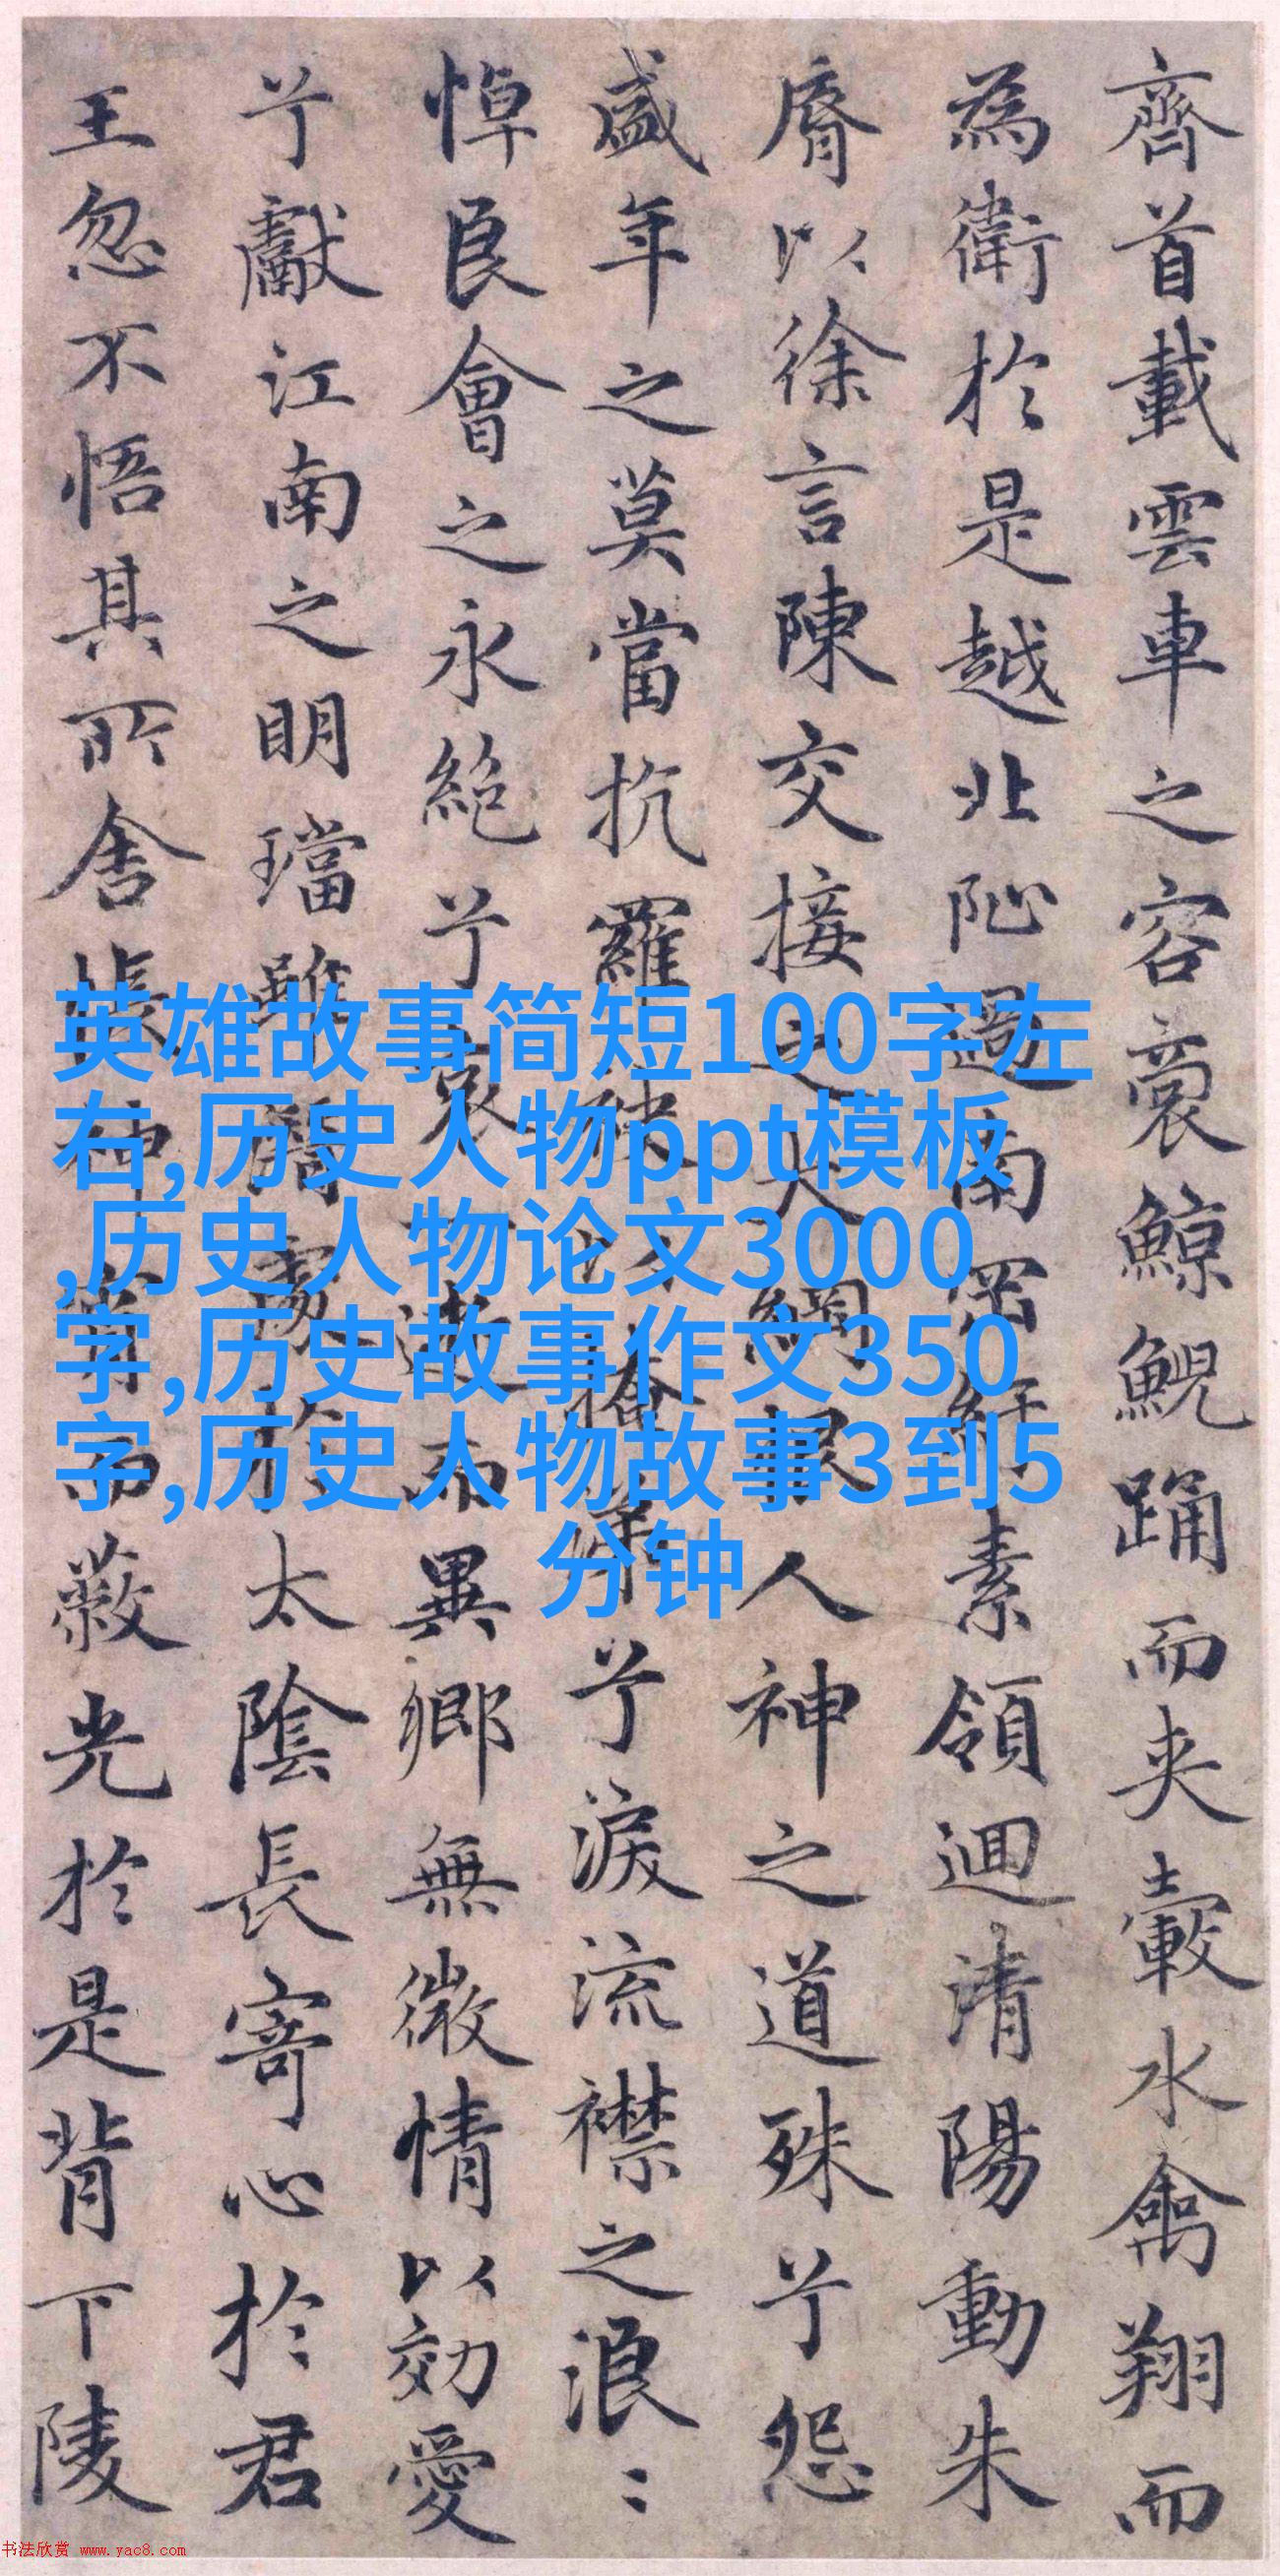 齊首載雲車之容裔鯨鯢踊而夾轂水禽翔而
為衛於是越北沚過南岡紆素領迴清陽動朱
脣以徐言陳交接之大綱恨人神之道殊兮怨
盛年之莫當抗羅袂以掩涕兮淚流襟之浪〻
悼良會之永絕兮哀一逝而異鄉無微情以効愛
兮獻江南之明璫雖潛處於太陰長寄心於君
王忽不悟其所舍悵神宵而蔽光於是背下陵
英雄故事简短100字左
右,历史人物ppt模板
,历史人物论文3000
字,历史故事作文350
字,历史人物故事3到5
分钟
书法欣赏 www.yac8.com